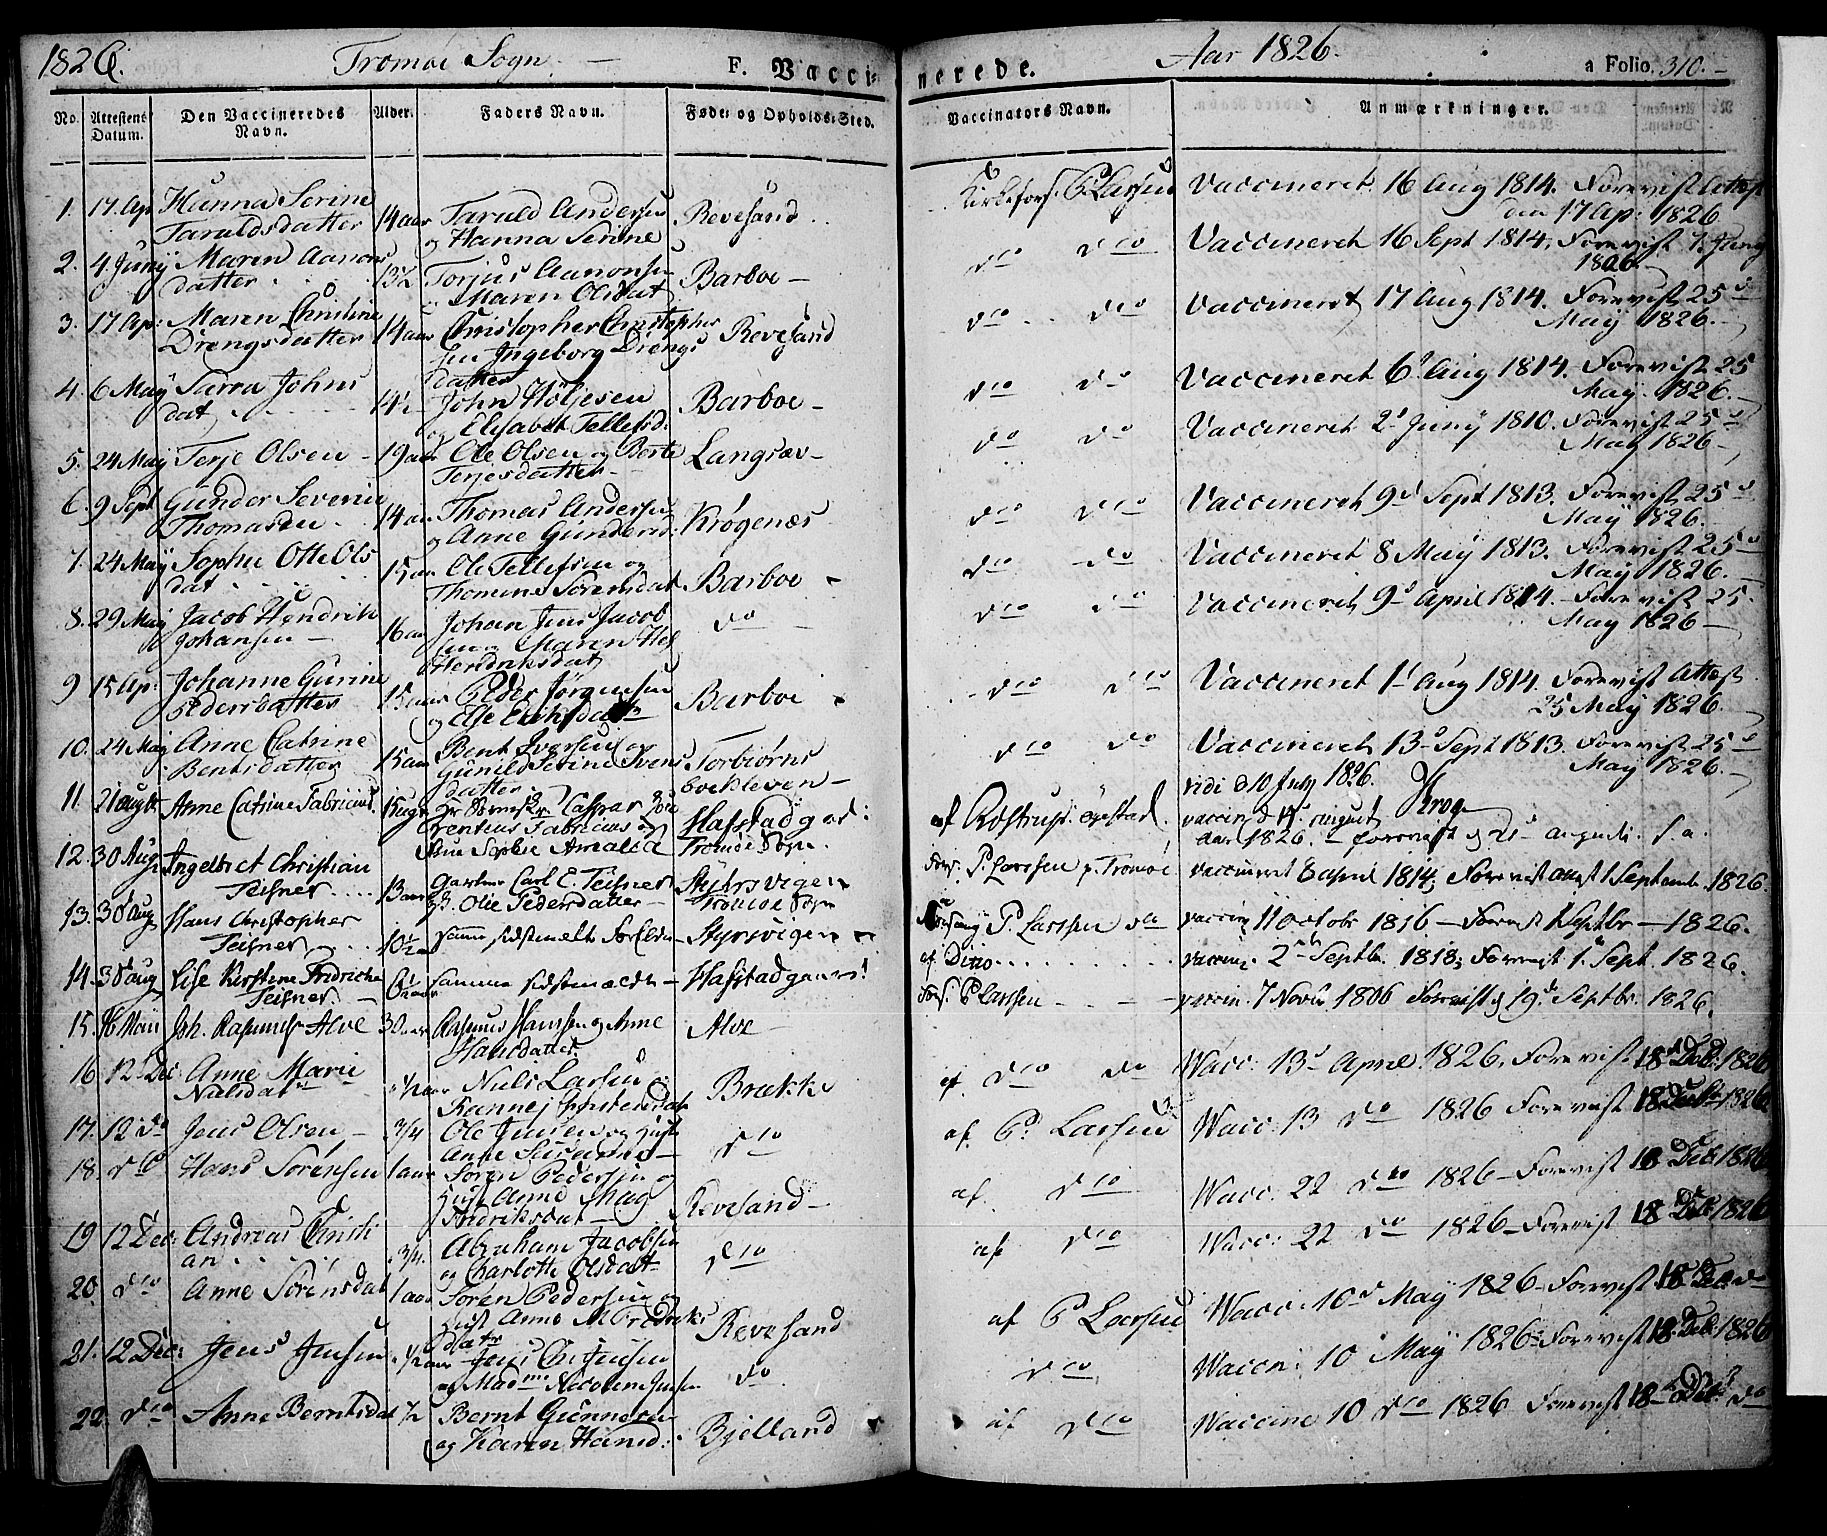 1826. Tromøe Sogn. F. Vaccinerede. Aar 1826. a Folio. 310.
No. Attestens Datum. Den Vaccineredes Navn. Alder. Faders Navn. Føde- og Opholds-Sted. Vaccinators Navn. Anmærkninger.
1. 17 Ap Hanna Serine Taraldsdatter 14 aar Tarald Andersen og Hanna Serine Revesand Kirkefors. P Larsen Vaccineret 16 Aug 1814. Forevist Attest den 17 Ap: 1826
2. 4 Juny Maren Aanonsdatter 13½ Torjus Aanonsen Maren Olsdat Barboe do do Vaccineret 16 Sept 1814, Forevist 7. Juny 1826
3. 17 Ap: Maren Christine Drengsdatter 14 aar Christopher Christophersen Ingeborg Drengsdatter Revesand do do Vaccineret 17 Aug 1814. Forevist 25 May 1826.
4. 6 May Sarra Johnsdat 14½ John Höljesen og Elisabet Tellefsd. Barboe do do Vaccineret 6 Aug 1814. Forevist 25 May. 1826.
5. 24 May Terje Olsen 19 aar Ole Olsen og Berte Terjesdatter Langsæv do do Vaccineret 2 Juny 1810. Forevist 25 May 1826
6. 9 Sept Gunder Severin Thomasen 14 aar Thomas Andersen og Anne Gunders. Krøgenæs do do Vaccineret 9 Sept 1813. Forevist 25 May 1826.
7. 24 May Sophie Otte Olsdat 15 aar Ole Tellefsen og Thomine Sörensdat Barboe do do Vaccineret 8 May 1813. Forevist 25 May 1826.
8. 29 May Jacob Hendrik Johansen 16 aar Johan Jens Jacobsen og Maren Hendriksdat do do do Vaccineret 9 April 1814. Forevist 25. May 1826
9 15 Ap: Johanne Gurine Pedersdatter 15 aar Peder Jörgensen og Else Eriksdatt Barboe do do Vaccineret 1 Aug 1814. Forevist Attest 25 May 1826.
10. 24 May Anne Catrine Bentsdatter 15 aar Bent Iversen og Gunild Serine Svensdatter Torbiørns boekleven do do Vaccineret 13 Sept 1813. Forevist 25 May 1826.
11. 21 Augt Anne Catrine Fabricius Caspar Fabricius og Sophie Amalia Hafstadgad: Tromöe Sogn. af Rostrup vidi d 10 July 1826. Krog
vaccin d august aar 1826. forevist 21 august. s. a.
12. 30 Aug Ingelbret Christian Teisner 13 aar Gartner Carl E. Teisner Olie Pedersdatter Styrsvigen Tromöe Sogn Fors. P. Larssen p. Tromöe vaccineret 8 april 1814; Forevist attest 1 Septemb. 1826.
13. 30 Aug Hans Christopher Teisner 10½ Samme sidstmeldte Forældre Styrsvigen P. Larssen vaccin 11 octobr 1816 Forevist 1 Septbr 1826.
14. 30 aug Else Kirstine Fridricke Teisner 6½ aar Samme sidstmældte Hafstadgaard! af Ditto vaccin. 2 Septbr. 1818; Forevist 1 Sept. 1826.
15. Joh. Rasmus Alve 30 aar Rasmus Hansen og Anne Hansdatter Alve Fors. P Larssen vaccin. 7 Novbr 1806 Forevist 19 Septbr. 1826.
16 12 Dec: Anne Marie Nielsdatr ½ aar Niels Larsen Brække af do do Wacc. 13 April 1826, Forevist 18 Deb 1826
17. 12 do Jens Olsen 3/4 Ole Jensen og hust Anne do af P. Larsen Wacc. 13 do 1826 Forevist 18 1826
18. do Hans Sorensen 1 aar Sören Pedersen og hust Anne Mag Fredriksdat Revesand af do Wacc. 22 do 1826 Forevist 18 Deb 1826
19 12 Dec: Andreas Christian 3/4. Abraham Jacobsen og Charlotte Olsdatr do af do Wacc: 22 do 1826 Forevist 18 1826
20. do Anne Sorensdat 1 aar Sören Pedersen og hust Anne M Fredriksdatr Revesand af P Larsen Wacc: 10 May 1826 Forevist 18 Dec do
21. 12 Dec: Jens Jensen ½ aar Jens Jensen og Madme Nicoline Jensen do do Waccn: 10 May 1826 Forevist 18. Deb 1826
22. do Anne Berntsdat ½ Bernt Gunnersen og Karen Hansd. Bjelland af do Waccine 10 do 1826 Forevist 18 Deb do